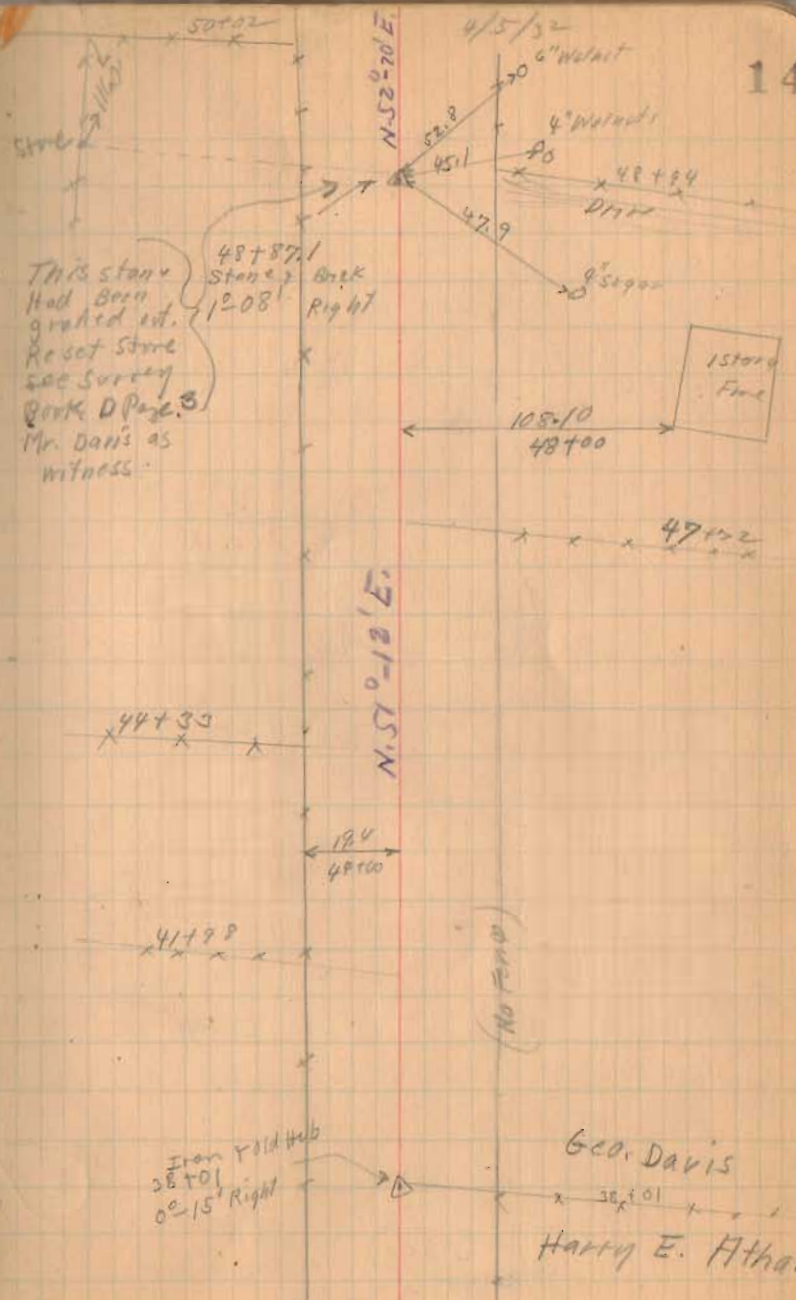 50+02
4/5/32
14
N-52°-20' E.
6" Walnut
52.8
4" Walnuts
45.1
48+94
Drive
Stone
47.9
48+87.1
Stone & Brick
1°-08' Right
This stone
Had Been
graded out.
Reset Stone
see Survey
Book D Page 3
Mr. Davis as
witness.
4" Sugar
1 Story
108.10
48+00
N.51°-12' E.
44+33
19.4
41+98
(No Fence)
Iron & old Hub
38+01
0°-15' Right
Geo. Davis
38+01
Harry E.